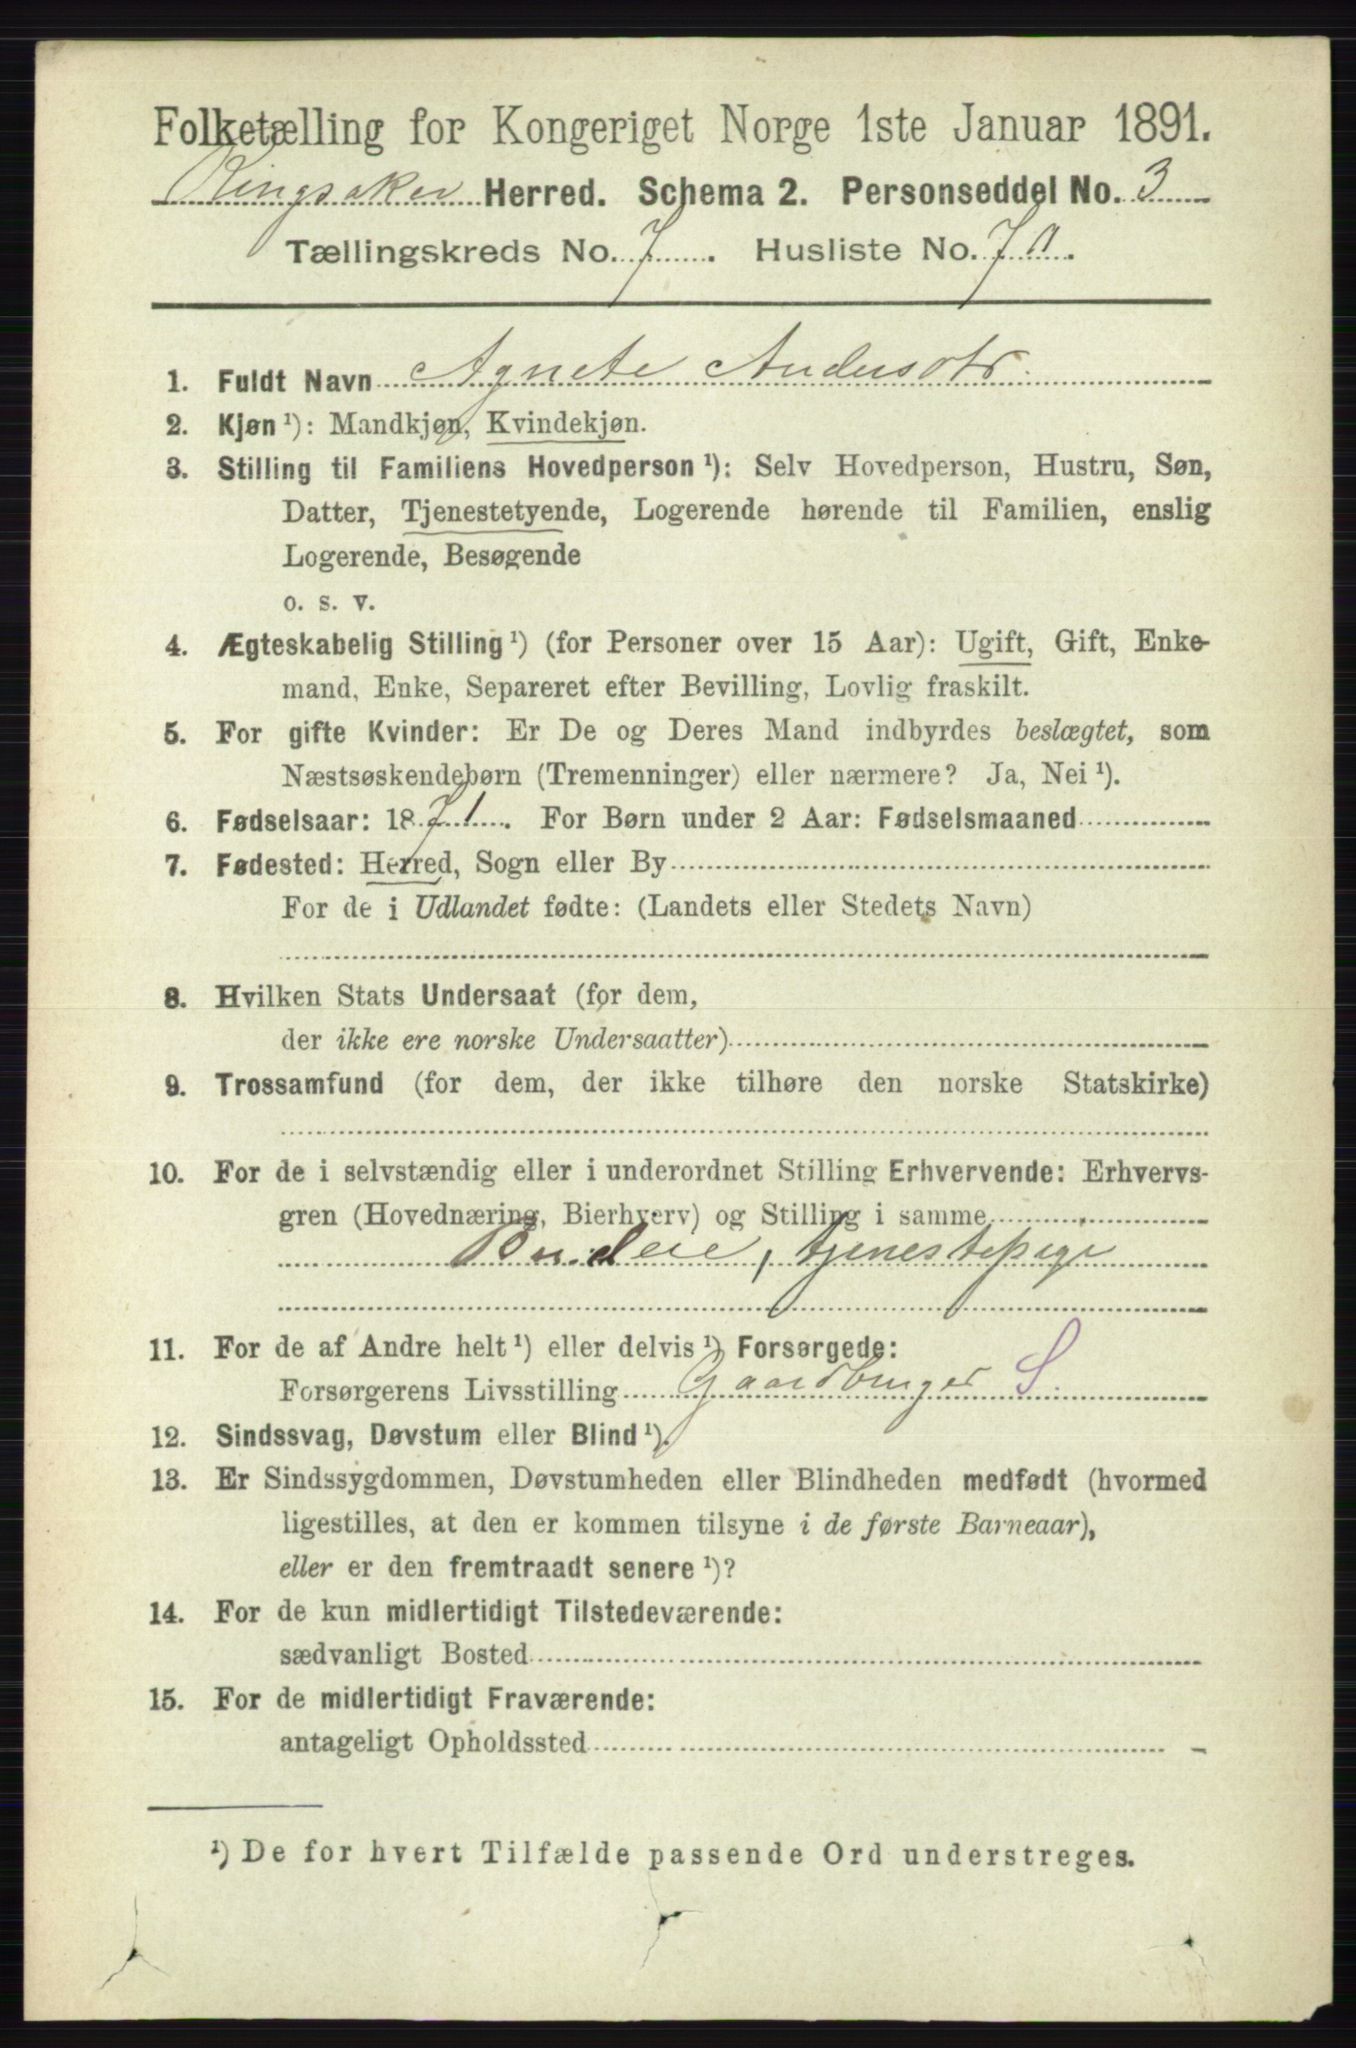 Folketælling for Kongeriget Norge 1ste Januar 1891.
Ringsaker Herred. Schema 2. Personseddel No. 3
Tællingskreds No. 7. Husliste No. 70.
1. Fuldt Navn Agnete Andersdtr.
2. Kjøn ¹): Mandkjøn, Kvindekjøn.
3. Stilling til Familiens Hovedperson ¹): Selv Hovedperson, Hustru, Søn,
Datter, Tjenestetyende, Logerende hørende til Familien, enslig
Logerende, Besøgende
o. s. v.
4. Ægteskabelig Stilling ¹) (for Personer over 15 Aar): Ugift, Gift, Enke-
mand, Enke, Separeret efter Bevilling, Lovlig fraskilt.
5. For gifte Kvinder: Er De og Deres Mand indbyrdes beslægtet, som
Næstsøskendebørn (Tremenninger) eller nærmere? Ja, Nei ¹).
6. Fødselsaar: 1871. For Børn under 2 Aar: Fødselsmaaned
7. Fødested: Herred, Sogn eller By
For de i Udlandet fødte: (Landets eller Stedets Navn)
8. Hvilken Stats Undersaat (for dem,
der ikke ere norske Undersaatter)
9. Trossamfund (for dem, der ikke tilhøre den norske Statskirke)
10. For de i selvstændig eller i underordnet Stilling Erhvervende: Erhvervs-
gren (Hovednæring, Bierhverv) og Stilling i samme
Budeie, tjenestepige
11. For de af Andre helt ¹) eller delvis ¹) Forsørgede:
Forsørgerens Livsstilling Gaardbruger S.
12. Sindssvag, Døvstum eller Blind ¹).
13. Er Sindssygdommen, Døvstumheden eller Blindheden medfødt (hvormed
ligestilles, at den er kommen tilsyne i de første Barneaar),
eller er den fremtraadt senere ¹)?
14. For de kun midlertidigt Tilstedeværende:
sædvanligt Bosted
15. For de midlertidigt Fraværende:
antageligt Opholdssted
¹) De for hvert Tilfælde passende Ord understreges.